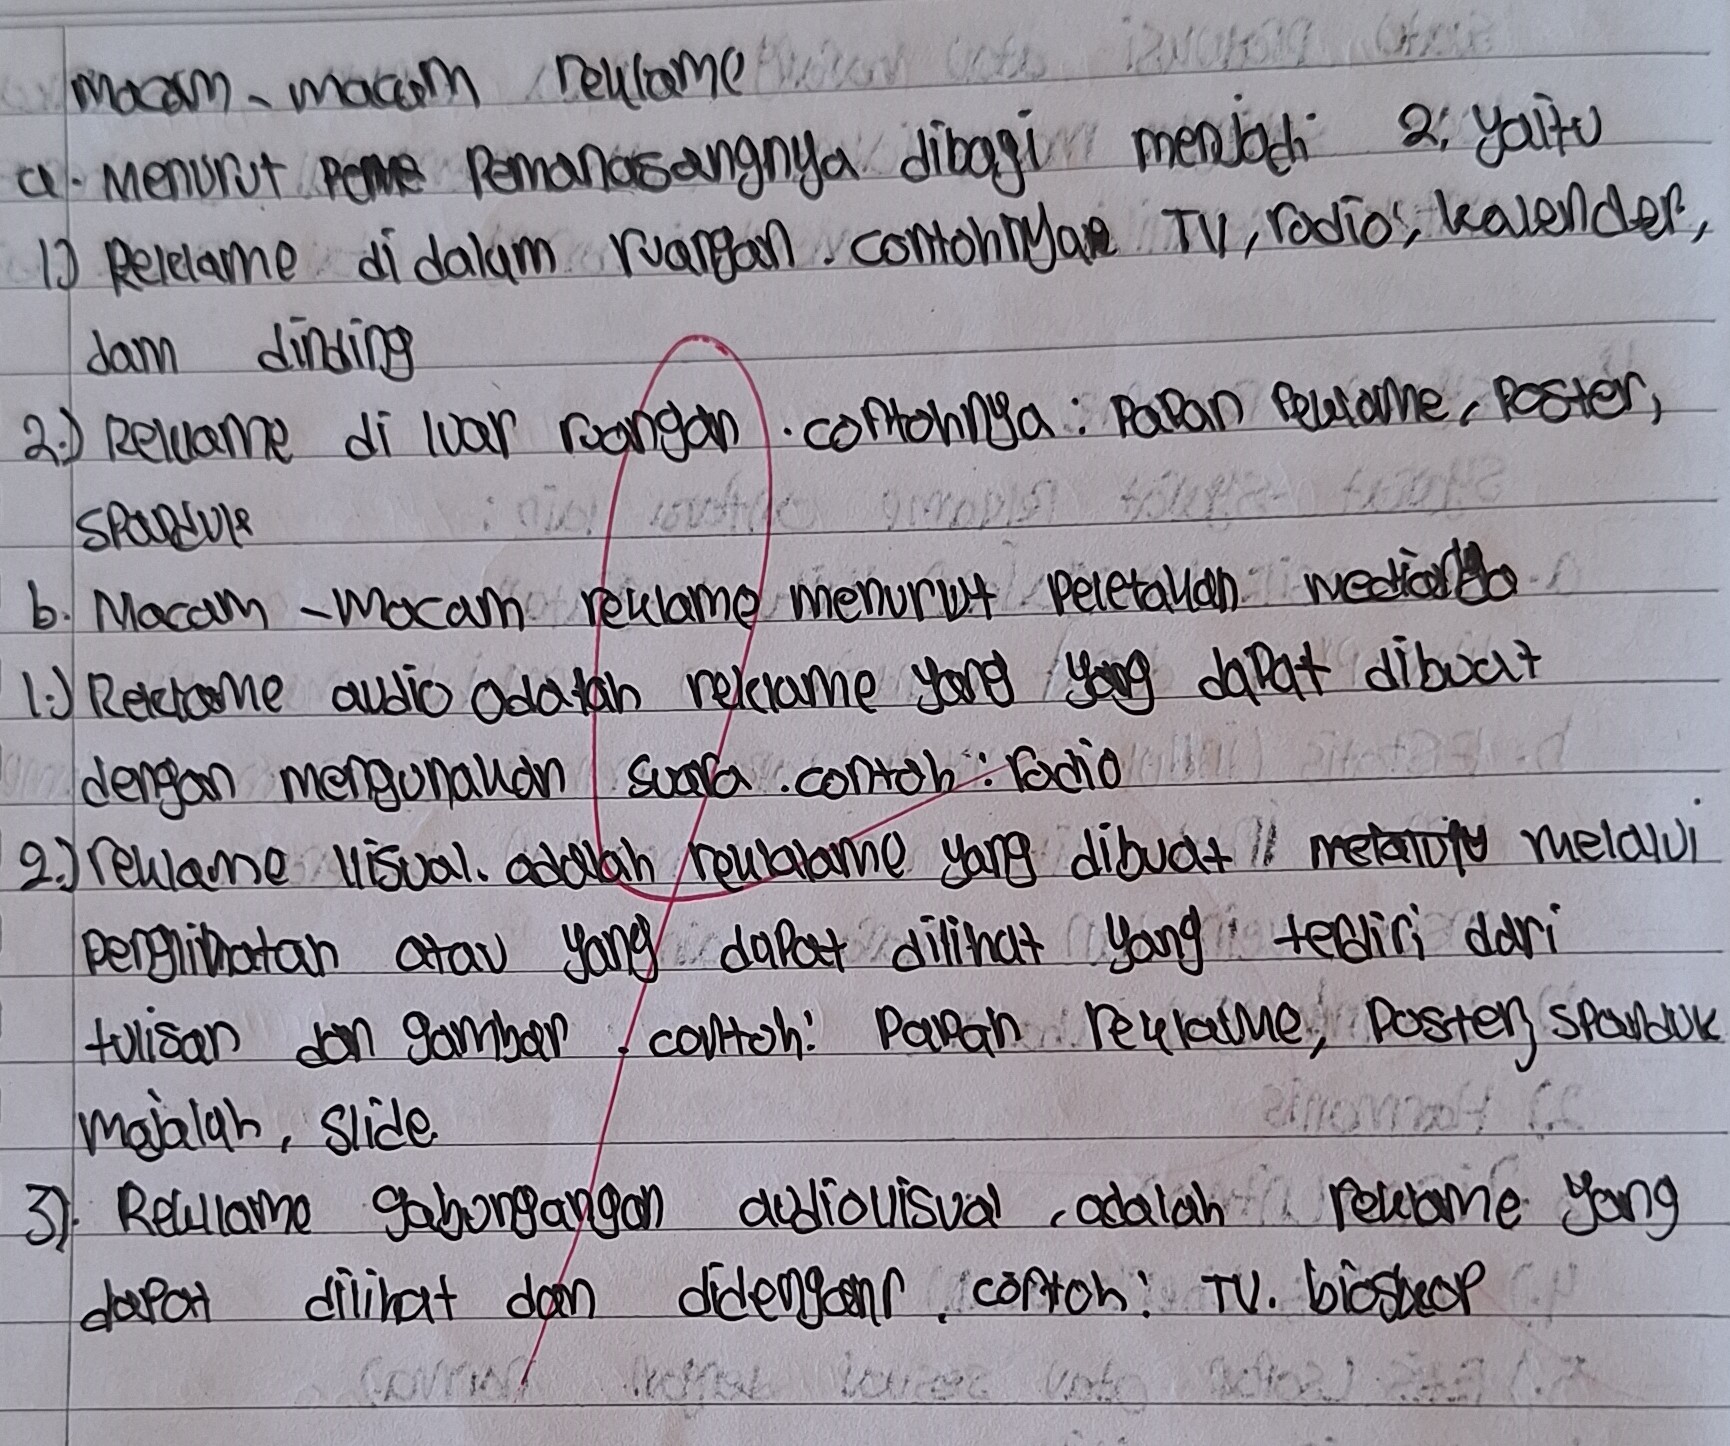 macam-macam reklame
a. Menurut Pemanasangnya dibagi menjadi 2, yaitu
1.) Reklame di dalam ruangan. contohnya TV, radio, kalender,
dam dinding
2.) Reklame di luar ruangan. contohnya: Papan reklame, Poster,
spanduk
b. Macam-macam reklame menurut Peletakan medianya
1.) Reklame audio adalah reklame yang yang dapat dibuat
dengan mengunakan suara. contoh: radio
2.) reklame visual. adalah reukalame yang dibuat melalui
penglihatan atau yang dapat dilihat yang tediri dari
tulisan dan gambar. contoh: Papan reklame, Poster, spanduk
majalah, slide
3). Reklame gabongangan audiovisual, adalah reklame yang
dapat dilihat dan didenganr. contoh: TV. bioskop